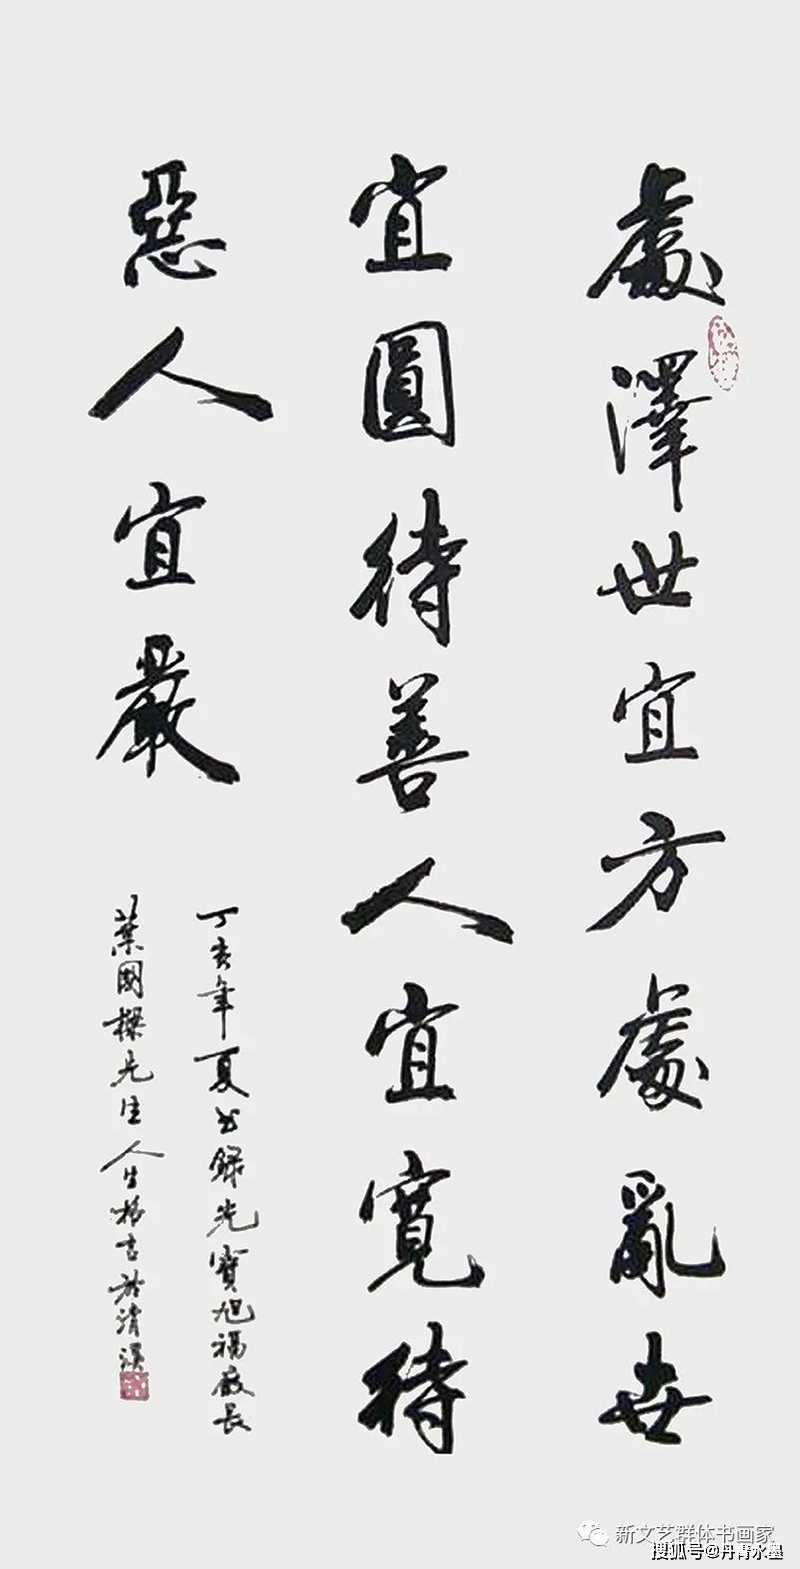 處澤世宜方處亂世
宜圓待善人宜寬待
惡人宜嚴
丁亥年夏書錄光寶旭福廠長
葉國樑先生人生格言於清溪
新文艺群体书画家
搜狐号@丹青水墨